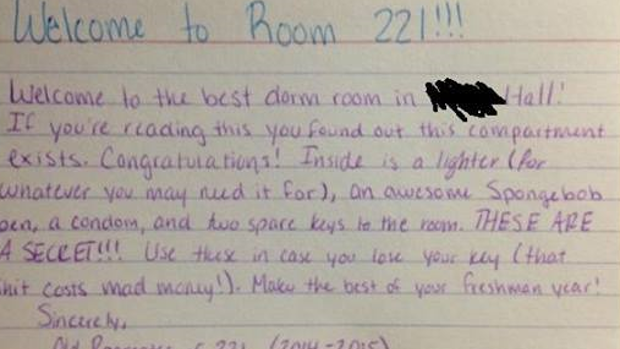 Welcome to Room 221!!!
Welcome to the best dorm room in Hall!
If you're reading this you found out this compartment
exists. Congratulations! Inside is a lighter (for
whatever you may need it for), an awesome Spongebob
pen, a condom, and two spare keys to the room. THESE ARE
A SECRET!!! Use these in case you lose your key (that
shit costs mad money!). Make the best of your freshman year!
Sincerely,
221 (2014-2015)